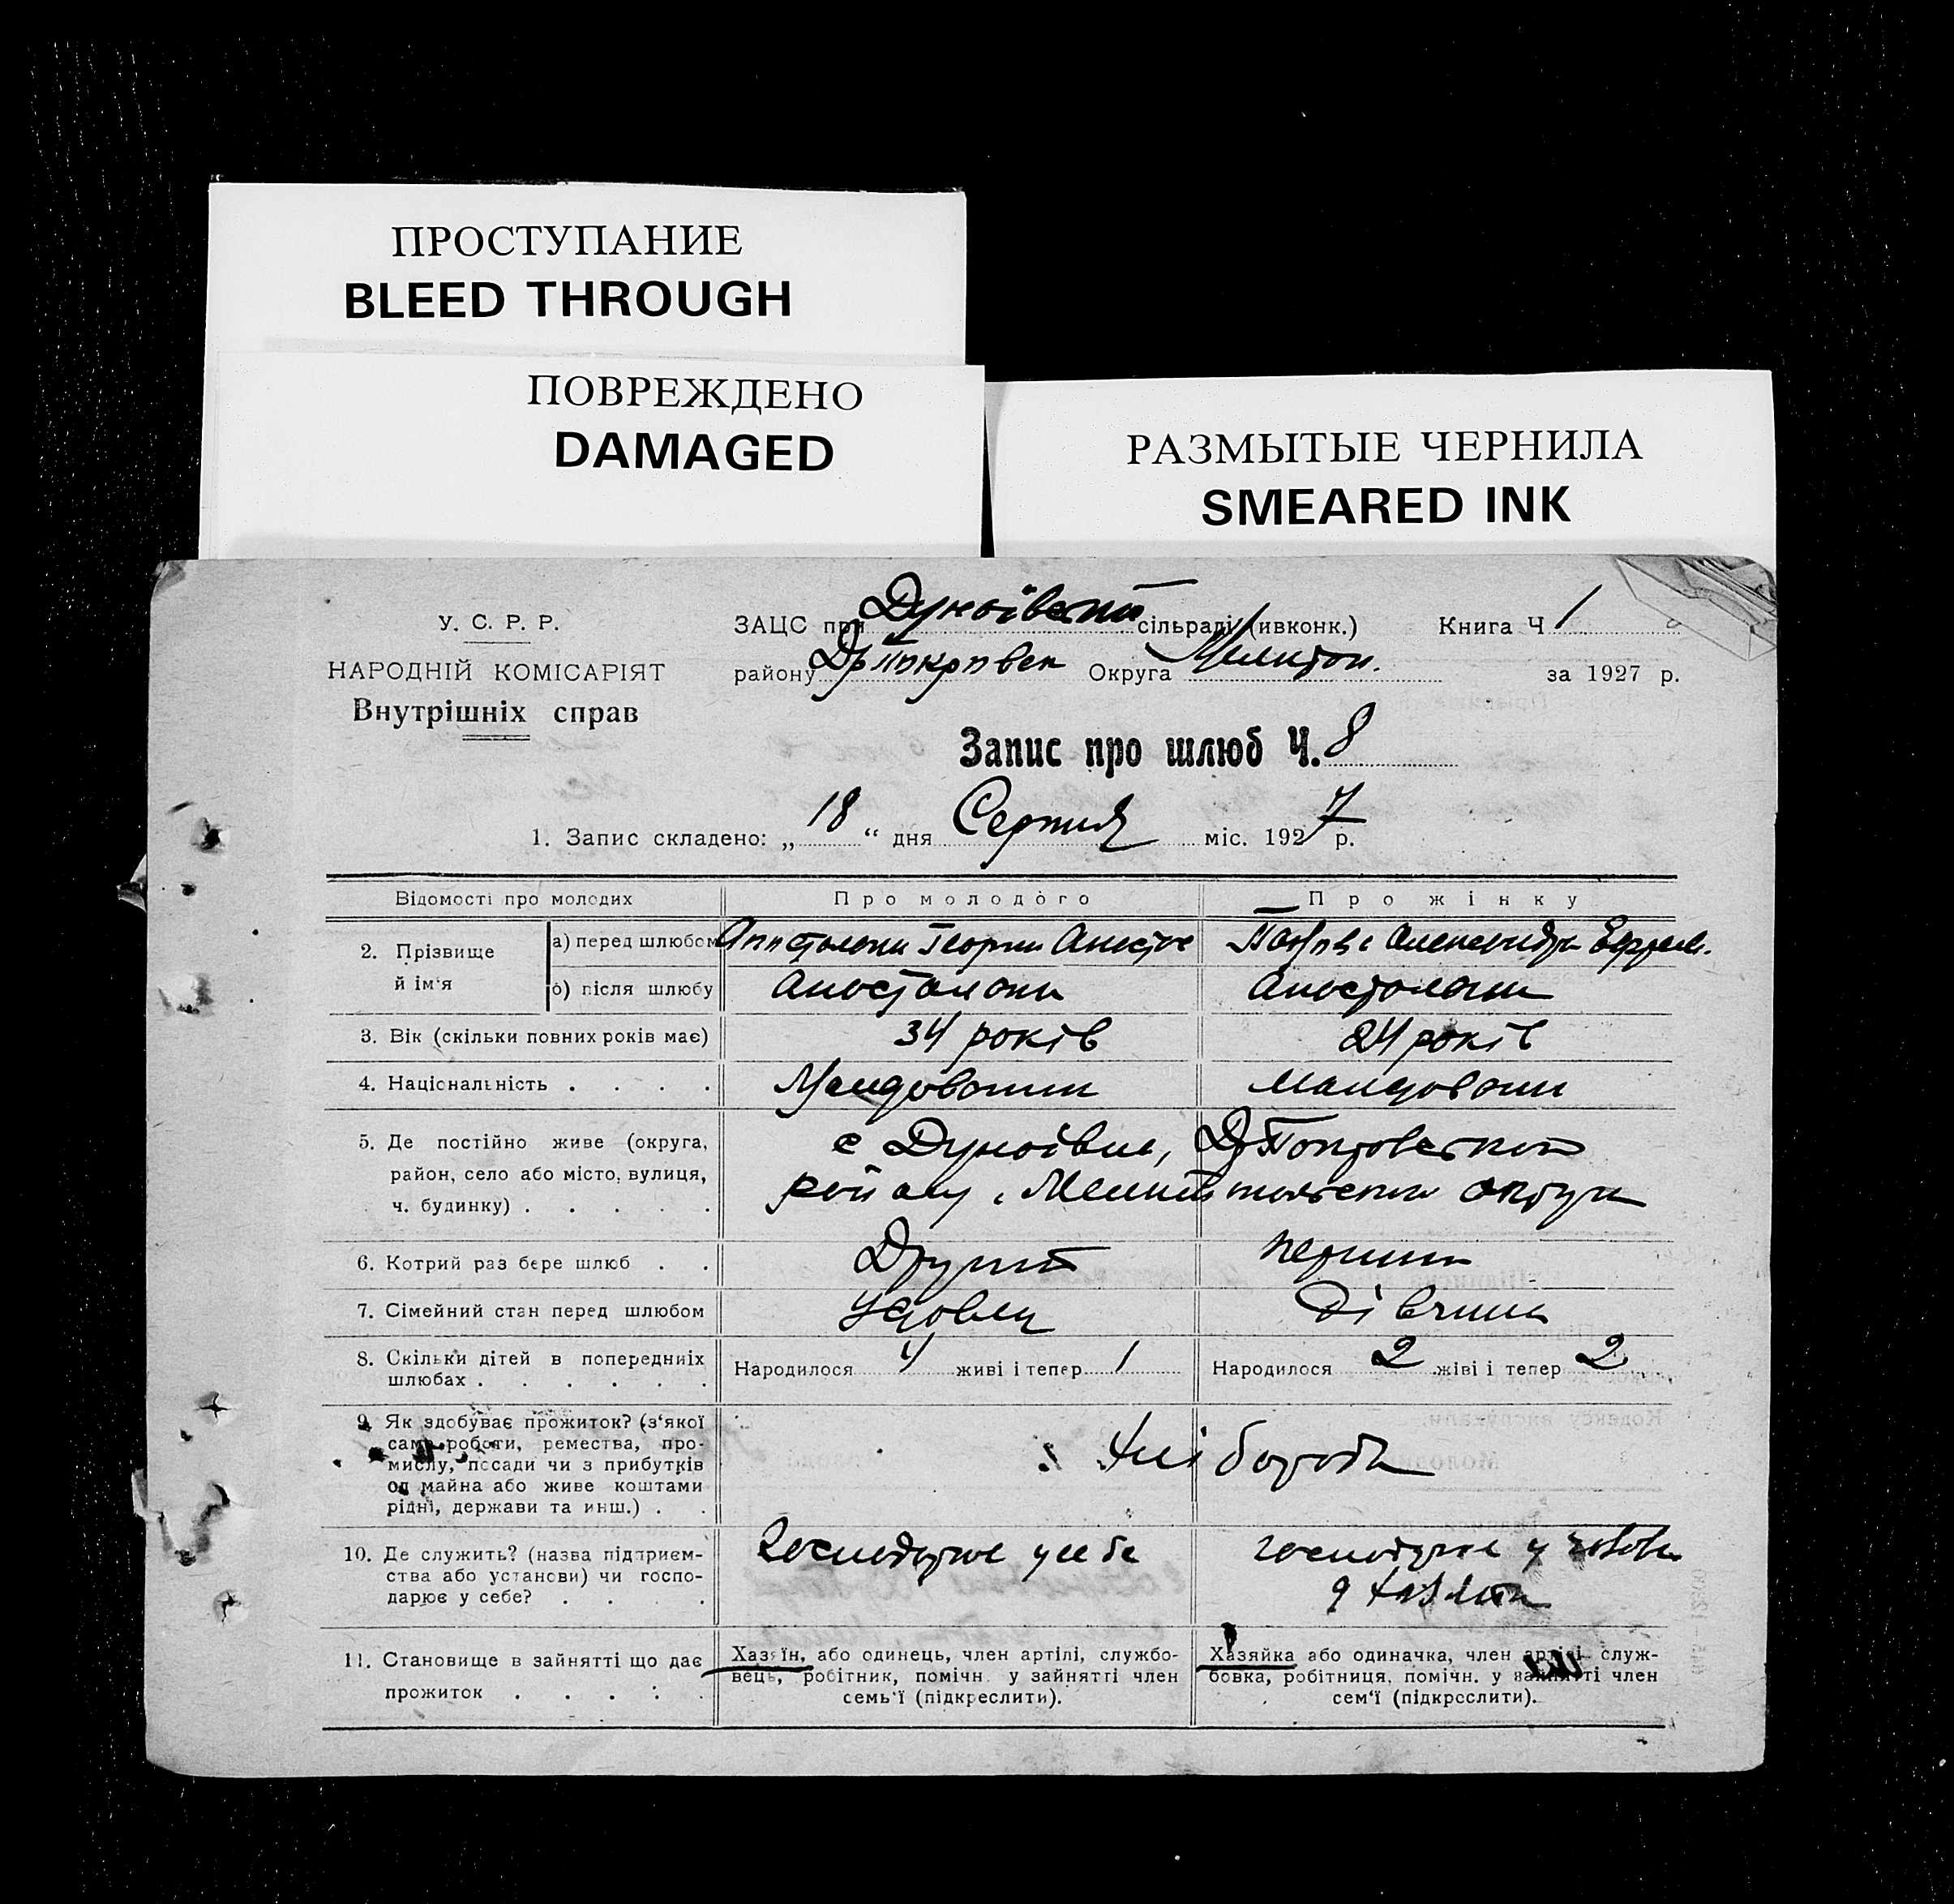 ПРОСТУПАНИЕ
BLEED THROUGH
ПОВРЕЖДЕНО
DAMAGED
РАЗМЫТЫЕ ЧЕРНИЛА
SMEARED INK
У. С. Р. Р.
НАРОДНІЙ КОМІСАРІЯТ
Внутрішніх справ
ЗАЦС при Дунаївській сільраді (ивконк.) Книга Ч 1
району Округа Мелитоп. за 1927 р.
Запис про шлюб Ч. 8
1. Запис складено: „ 18 “ дня Серпня міс. 1927 р.
Відомості про молодих Про молодого Про жінку
2. Прізвище й ім'я
а) перед шлюбом Георги
б) після шлюбу Апостолони Апостолони
3. Вік (скільки повних років має) 34 років 24 років
4. Національність . . . .
5. Де постійно живе (округа,
район, село або місто, вулиця,
ч. будинку) . . . . .
с Дунаївка,
району, Мелитопольскои округи
6. Котрий раз бере шлюб . . Другий перший
7. Сімейний стан перед шлюбом Удовец Дівчина
8. Скільки дітей в попередниіх
шлюбах . . . . . .
Народилося 4 живі і тепер 1 Народилося 2 живі і тепер 2
9. Як здобуває прожиток? (з'якої
саме роботи, ремества, про-
мислу, посади чи з прибутків
од майна або живе коштами
рідні, держави та инш.) . .
Хліборобі
10. Де служить? (назва підприєм-
ства або установи) чи госпо-
дарює у себе? . . . .
господарює у себе
господарює у
11. Становище в зайнятті що дає
прожиток . . . . .
Хазяїн, або одинець, член артілі, службо-
вець, робітник, помічн. у зайнятті член
семь'ї (підкреслити).
Хазяйка або одиначка, член артілі служ-
бовка, робітниця, помічн. у зайнятті член
сем'ї (підкреслити).